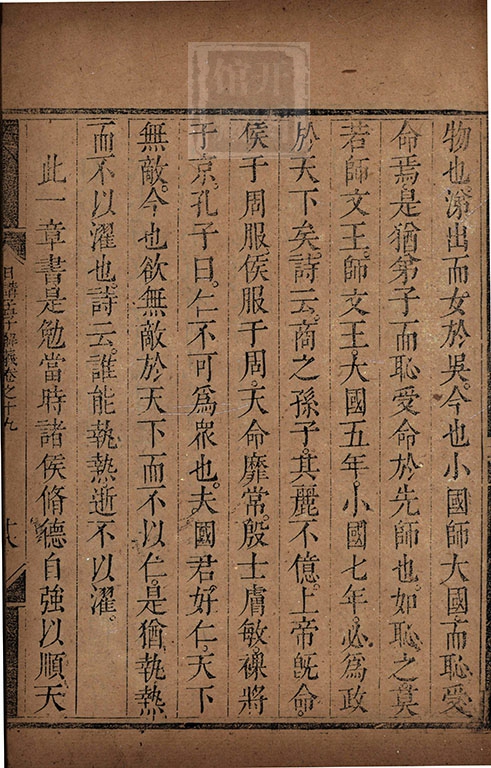 物也涕出而女於吳今也小國師大國而恥受
命焉是猶弟子而恥受命於先師也如恥之莫
若師文王師文王大國五年小國七年必為政
於天下矣詩云商之孫子其麗不億上帝既命
侯于周服侯服于周天命靡常殷士膚敏祼將
于京孔子曰仁不可為眾也夫國君好仁天下
無敵今也欲無敵於天下而不以仁是猶執熱
而不以濯也詩云誰能執熱逝不以濯
此一章書是勉當時諸侯脩德自強以順天
日講四書解義卷之十九
十八